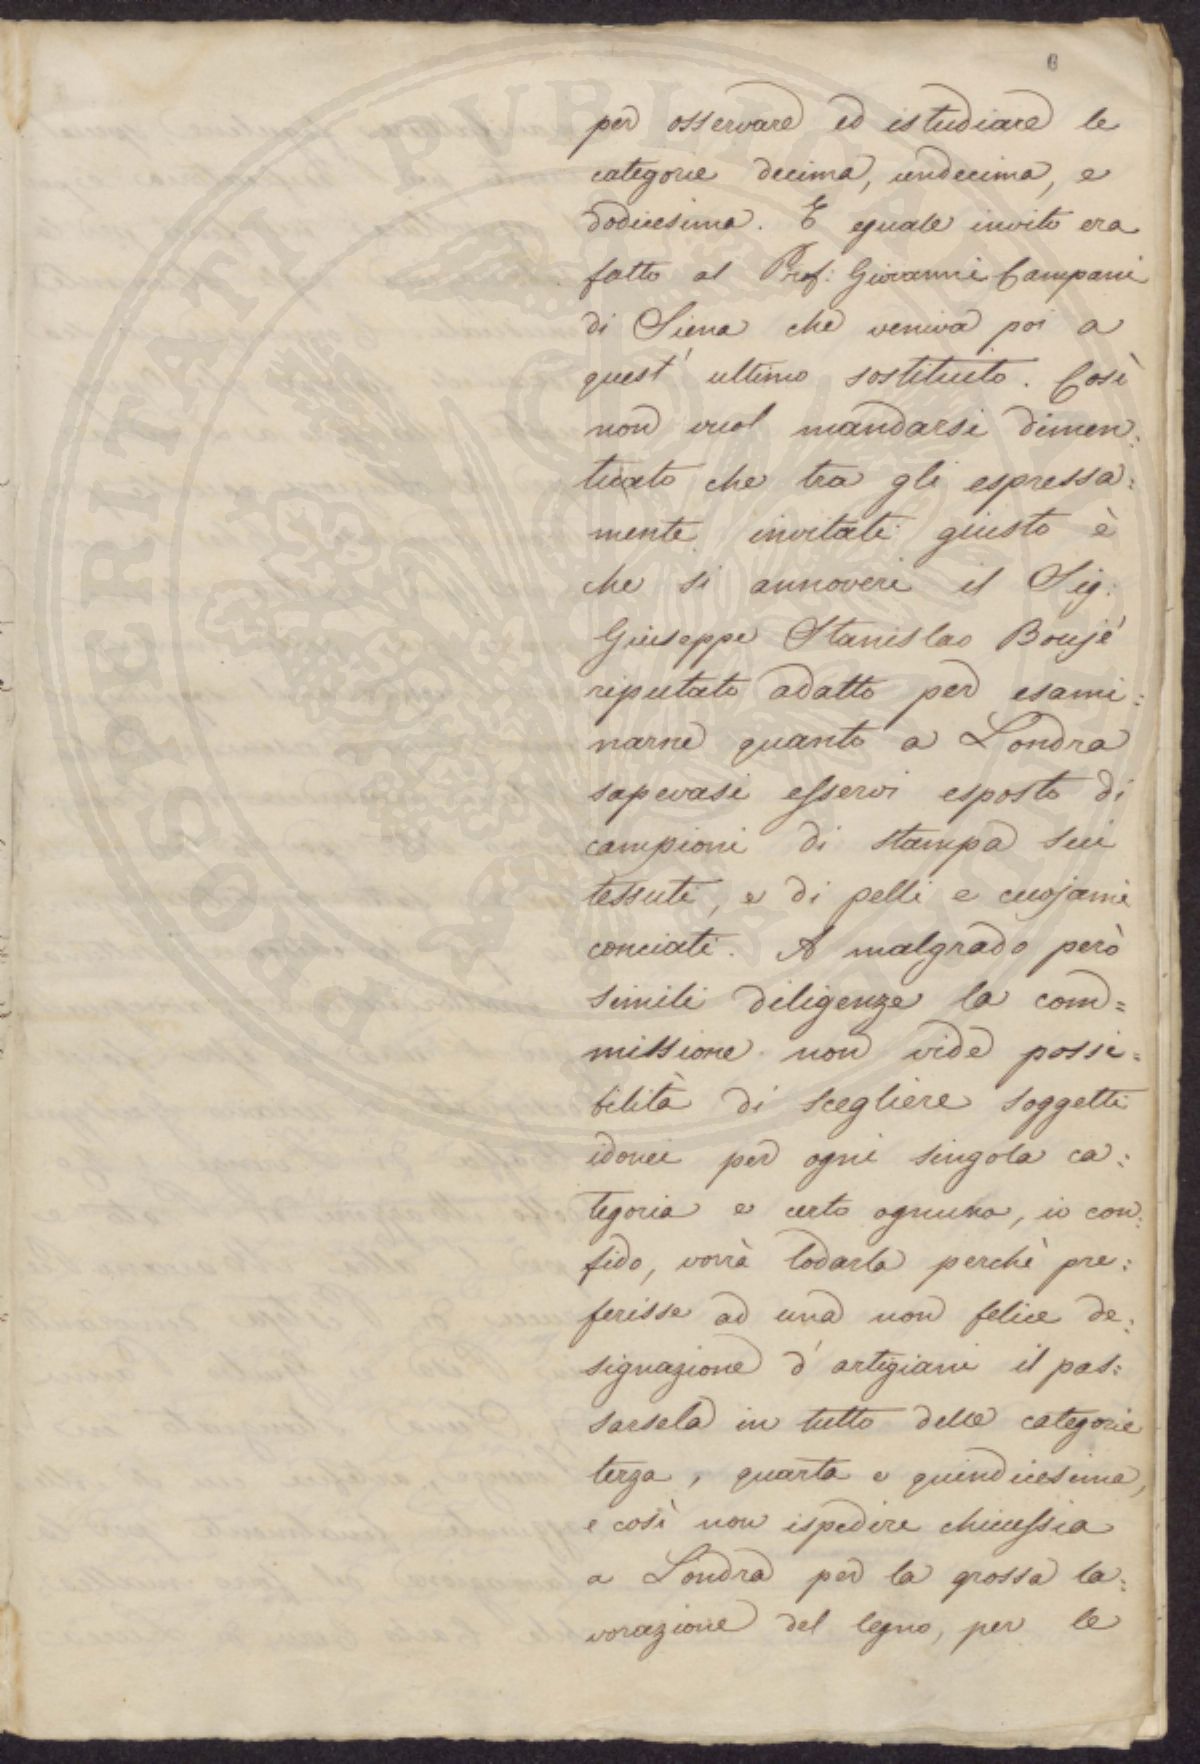 6
per osservare ed istudiare le
categorie decima, undecima, e
dodicesima. E eguale invito era
fatto al Prof: Giovanni Campani
di Siena che veniva poi a
quest' ultimo sostituito. Così
non vuol mandarsi dimen:
ticato che tra gli espressa:
mente invitati giusto è
che si annoveri il Sig:
Giuseppe Stanislao Boujé
reputato adatto per esami:
narne quanto a Londra
sapevasi esservi esposto di
campioni di stampa sui
tessuti, e di pelli e cuojami
conciati. A malgrado però
simili diligenze la com=
missione non vide possi=
bilità di scegliere soggetti
idonei per ogni singola ca:
tegoria e certo ognuno, io con:
fido, vorrà lodarla perchè pre:
ferisse ad una non felice de:
signazione d'artigiani il pas:
sarsela in tutto delle categorie
terza, quarta e quindicesima,
e così non ispedire chicessia
a Londra per la grossa la:
vorazione del legno, per le
PUBLICAE PROSPERITATI